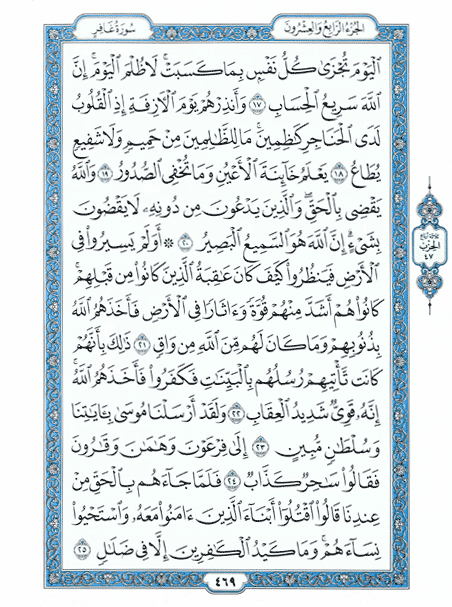 الجُزءُ الرَّابِعُ وَالعِشْرُونَ
سُورَةُ غَافِرٍ
ٱلْيَوْمَ تُجْزَىٰ كُلُّ نَفْسٍۭ بِمَا كَسَبَتْ ۚ لَا ظُلْمَ ٱلْيَوْمَ ۚ إِنَّ
ٱللَّهَ سَرِيعُ ٱلْحِسَابِ ١٧ وَأَنذِرْهُمْ يَوْمَ ٱلْأَزِفَةِ إِذِ ٱلْقُلُوبُ
لَدَى ٱلْحَنَاجِرِ كَٰظِمِينَ ۚ مَا لِلظَّٰلِمِينَ مِنْ حَمِيمٍ وَلَا شَفِيعٍ
يُطَاعُ ١٨ يَعْلَمُ خَآئِنَةَ ٱلْأَعْيُنِ وَمَا تُخْفِى ٱلصُّدُورُ ١٩ وَٱللَّهُ
يَقْضِى بِٱلْحَقِّ ۖ وَٱلَّذِينَ يَدْعُونَ مِن دُونِهِۦ لَا يَقْضُونَ
بِشَىْءٍ ۗ إِنَّ ٱللَّهَ هُوَ ٱلسَّمِيعُ ٱلْبَصِيرُ ٢٠ ۞ أَوَلَمْ يَسِيرُوا۟ فِى
ٱلْأَرْضِ فَيَنظُرُوا۟ كَيْفَ كَانَ عَٰقِبَةُ ٱلَّذِينَ كَانُوا۟ مِن قَبْلِهِمْ ۚ
كَانُوا۟ هُمْ أَشَدَّ مِنْهُمْ قُوَّةً وَءَاثَارًا فِى ٱلْأَرْضِ فَأَخَذَهُمُ ٱللَّهُ
بِذُنُوبِهِمْ وَمَا كَانَ لَهُم مِّنَ ٱللَّهِ مِن وَاقٍ ٢١ ذَٰلِكَ بِأَنَّهُمْ
كَانَت تَّأْتِيهِمْ رُسُلُهُم بِٱلْبَيِّنَٰتِ فَكَفَرُوا۟ فَأَخَذَهُمُ ٱللَّهُ ۚ
إِنَّهُۥ قَوِىٌّ شَدِيدُ ٱلْعِقَابِ ٢٢ وَلَقَدْ أَرْسَلْنَا مُوسَىٰ بِـَٔايَٰتِنَا
وَسُلْطَٰنٍ مُّبِينٍ ٢٣ إِلَىٰ فِرْعَوْنَ وَهَٰمَٰنَ وَقَٰرُونَ
فَقَالُوا۟ سَٰحِرٌ كَذَّابٌ ٢٤ فَلَمَّا جَآءَهُم بِٱلْحَقِّ مِنْ
عِندِنَا قَالُوا۟ ٱقْتُلُوٓا۟ أَبْنَآءَ ٱلَّذِينَ ءَامَنُوا۟ مَعَهُۥ وَٱسْتَحْيُوا۟
نِسَآءَهُمْ ۚ وَمَا كَيْدُ ٱلْكَٰفِرِينَ إِلَّا فِى ضَلَٰلٍ ٢٥
الحزب
٤٧
٤٦٩